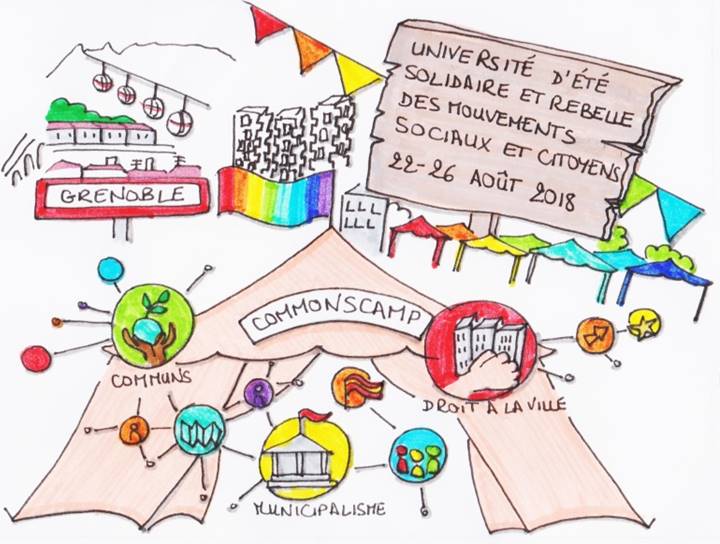 UNIVERSITÉ D'ÉTÉ
SOLIDAIRE ET REBELLE
DES MOUVEMENTS
SOCIAUX ET CITOYENS
22-26 AOÛT 2018
GRENOBLE
COMMONSCAMP
COMMUNS
DROIT À LA VILLE
MUNICIPALISME